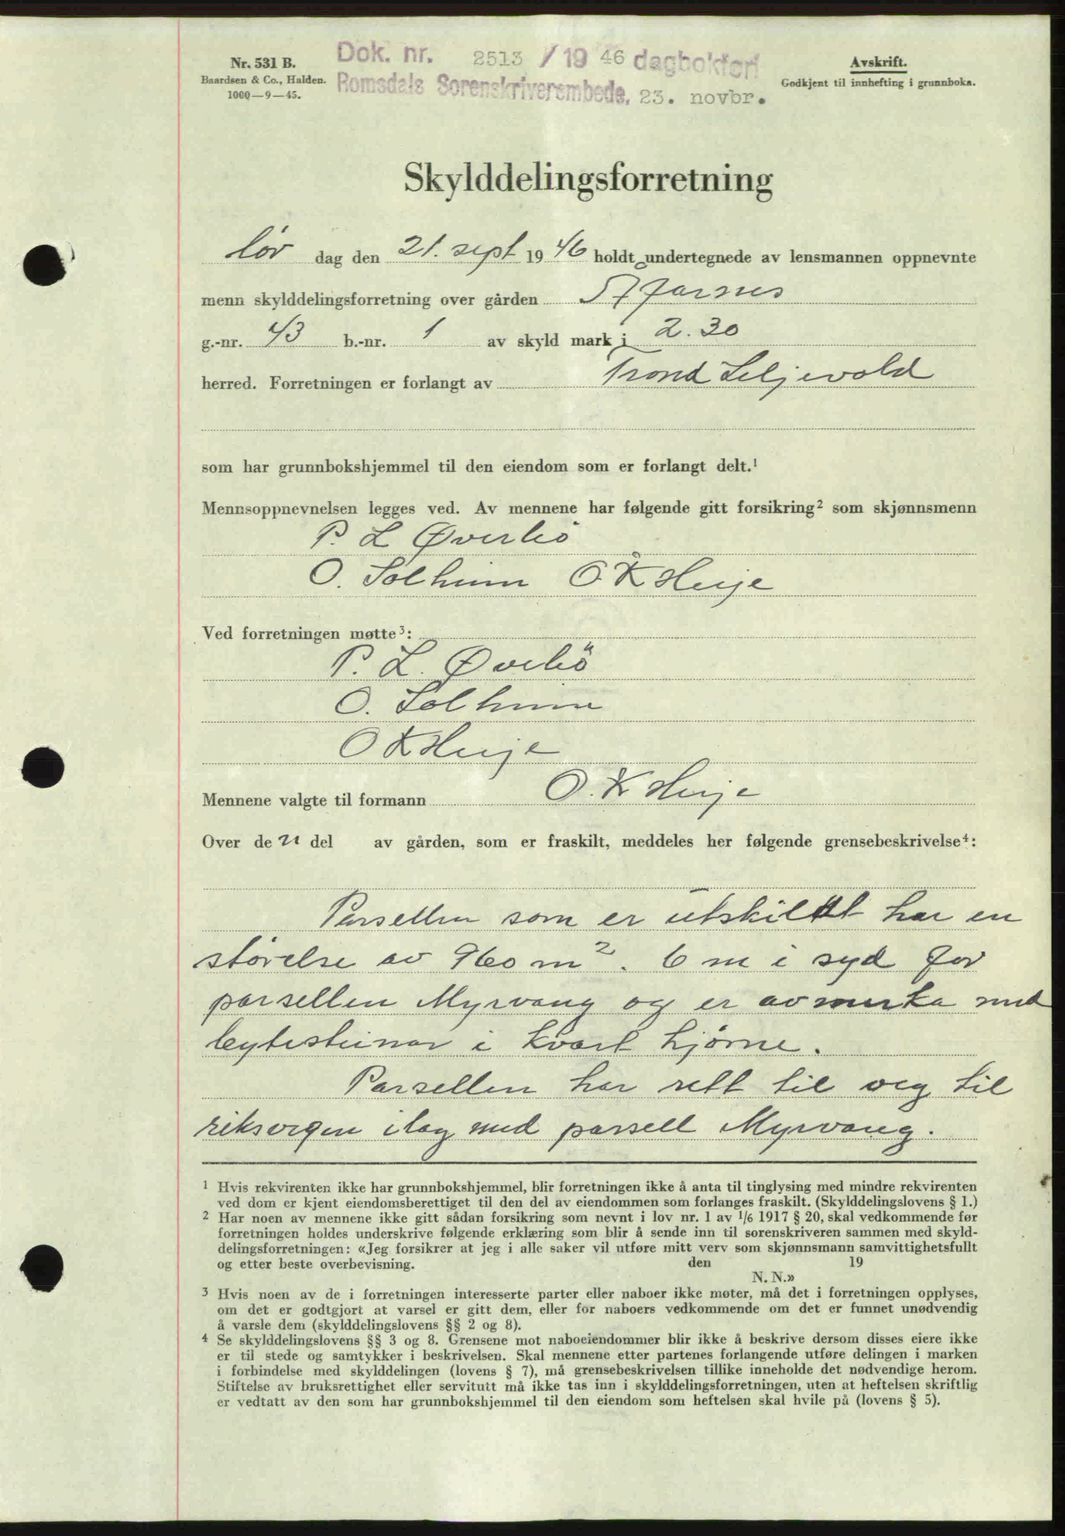 Nr. 531 B.
Baardsen & Co., Halden.
1000—9—45.
Dok. nr. 2513 / 19 46 dagbokført
Romsdals Sorenskriverembede, 23. novbr.
Avskrift.
Godkjent til innhefting i grunnboka.
Skylddelingsforretning
lør dag den 21. sept 19 46 holdt undertegnede av lensmannen oppnevnte
menn skylddelingsforretning over gården Åfarnes
g.-nr. 43 b.-nr. 1 av skyld mark 2.30 i
herred. Forretningen er forlangt av Trond Liljevold
som har grunnbokshjemmel til den eiendom som er forlangt delt.¹
Mennsoppnevnelsen legges ved. Av mennene har følgende gitt forsikring² som skjønnsmenn
P. L Øverbö
O. Solheim O K Heije
Ved forretningen møtte³:
P. L. Øverbö
O. Solheim
O K Heije
Mennene valgte til formann O. K Heije
Over de n del av gården, som er fraskilt, meddeles her følgende grensebeskrivelse⁴:
Parsellen som er utskilt har en
størelse av 960 m². 6 m i syd for
parsellen Myrvang og er avmerka med
bytesteinar i kvart hjørne.
Parsellen har rett til veg til
riksvegen i lag med parsell Myrvang.
¹ Hvis rekvirenten ikke har grunnbokshjemmel, blir forretningen ikke å anta til tinglysing med mindre rekvirenten
ved dom er kjent eiendomsberettiget til den del av eiendommen som forlanges fraskilt. (Skylddelingslovens § 1.)
² Har noen av mennene ikke gitt sådan forsikring som nevnt i lov nr. 1 av 1/6 1917 § 20, skal vedkommende før
forretningen holdes underskrive følgende erklæring som blir å sende inn til sorenskriveren sammen med skyld-
delingsforretningen: «Jeg forsikrer at jeg i alle saker vil utføre mitt verv som skjønnsmann samvittighetsfullt
og etter beste overbevisning. den 19
N. N.»
³ Hvis noen av de i forretningen interesserte parter eller naboer ikke møter, må det i forretningen opplyses,
om det er godtgjort at varsel er gitt dem, eller for naboers vedkommende om det er funnet unødvendig
å varsle dem (skylddelingslovens §§ 2 og 8).
⁴ Se skylddelingslovens §§ 3 og 8. Grensene mot naboeiendommer blir ikke å beskrive dersom disses eiere ikke
er til stede og samtykker i beskrivelsen. Skal mennene etter partenes forlangende utføre delingen i marken
i forbindelse med skylddelingen (lovens § 7), må grensebeskrivelsen tillike inneholde det nødvendige herom.
Stiftelse av bruksrettighet eller servitutt må ikke tas inn i skylddelingsforretningen, uten at heftelsen skriftlig
er vedtatt av den som har grunnbokshjemmel til den eiendom som heftelsen skal hvile på (lovens § 5).